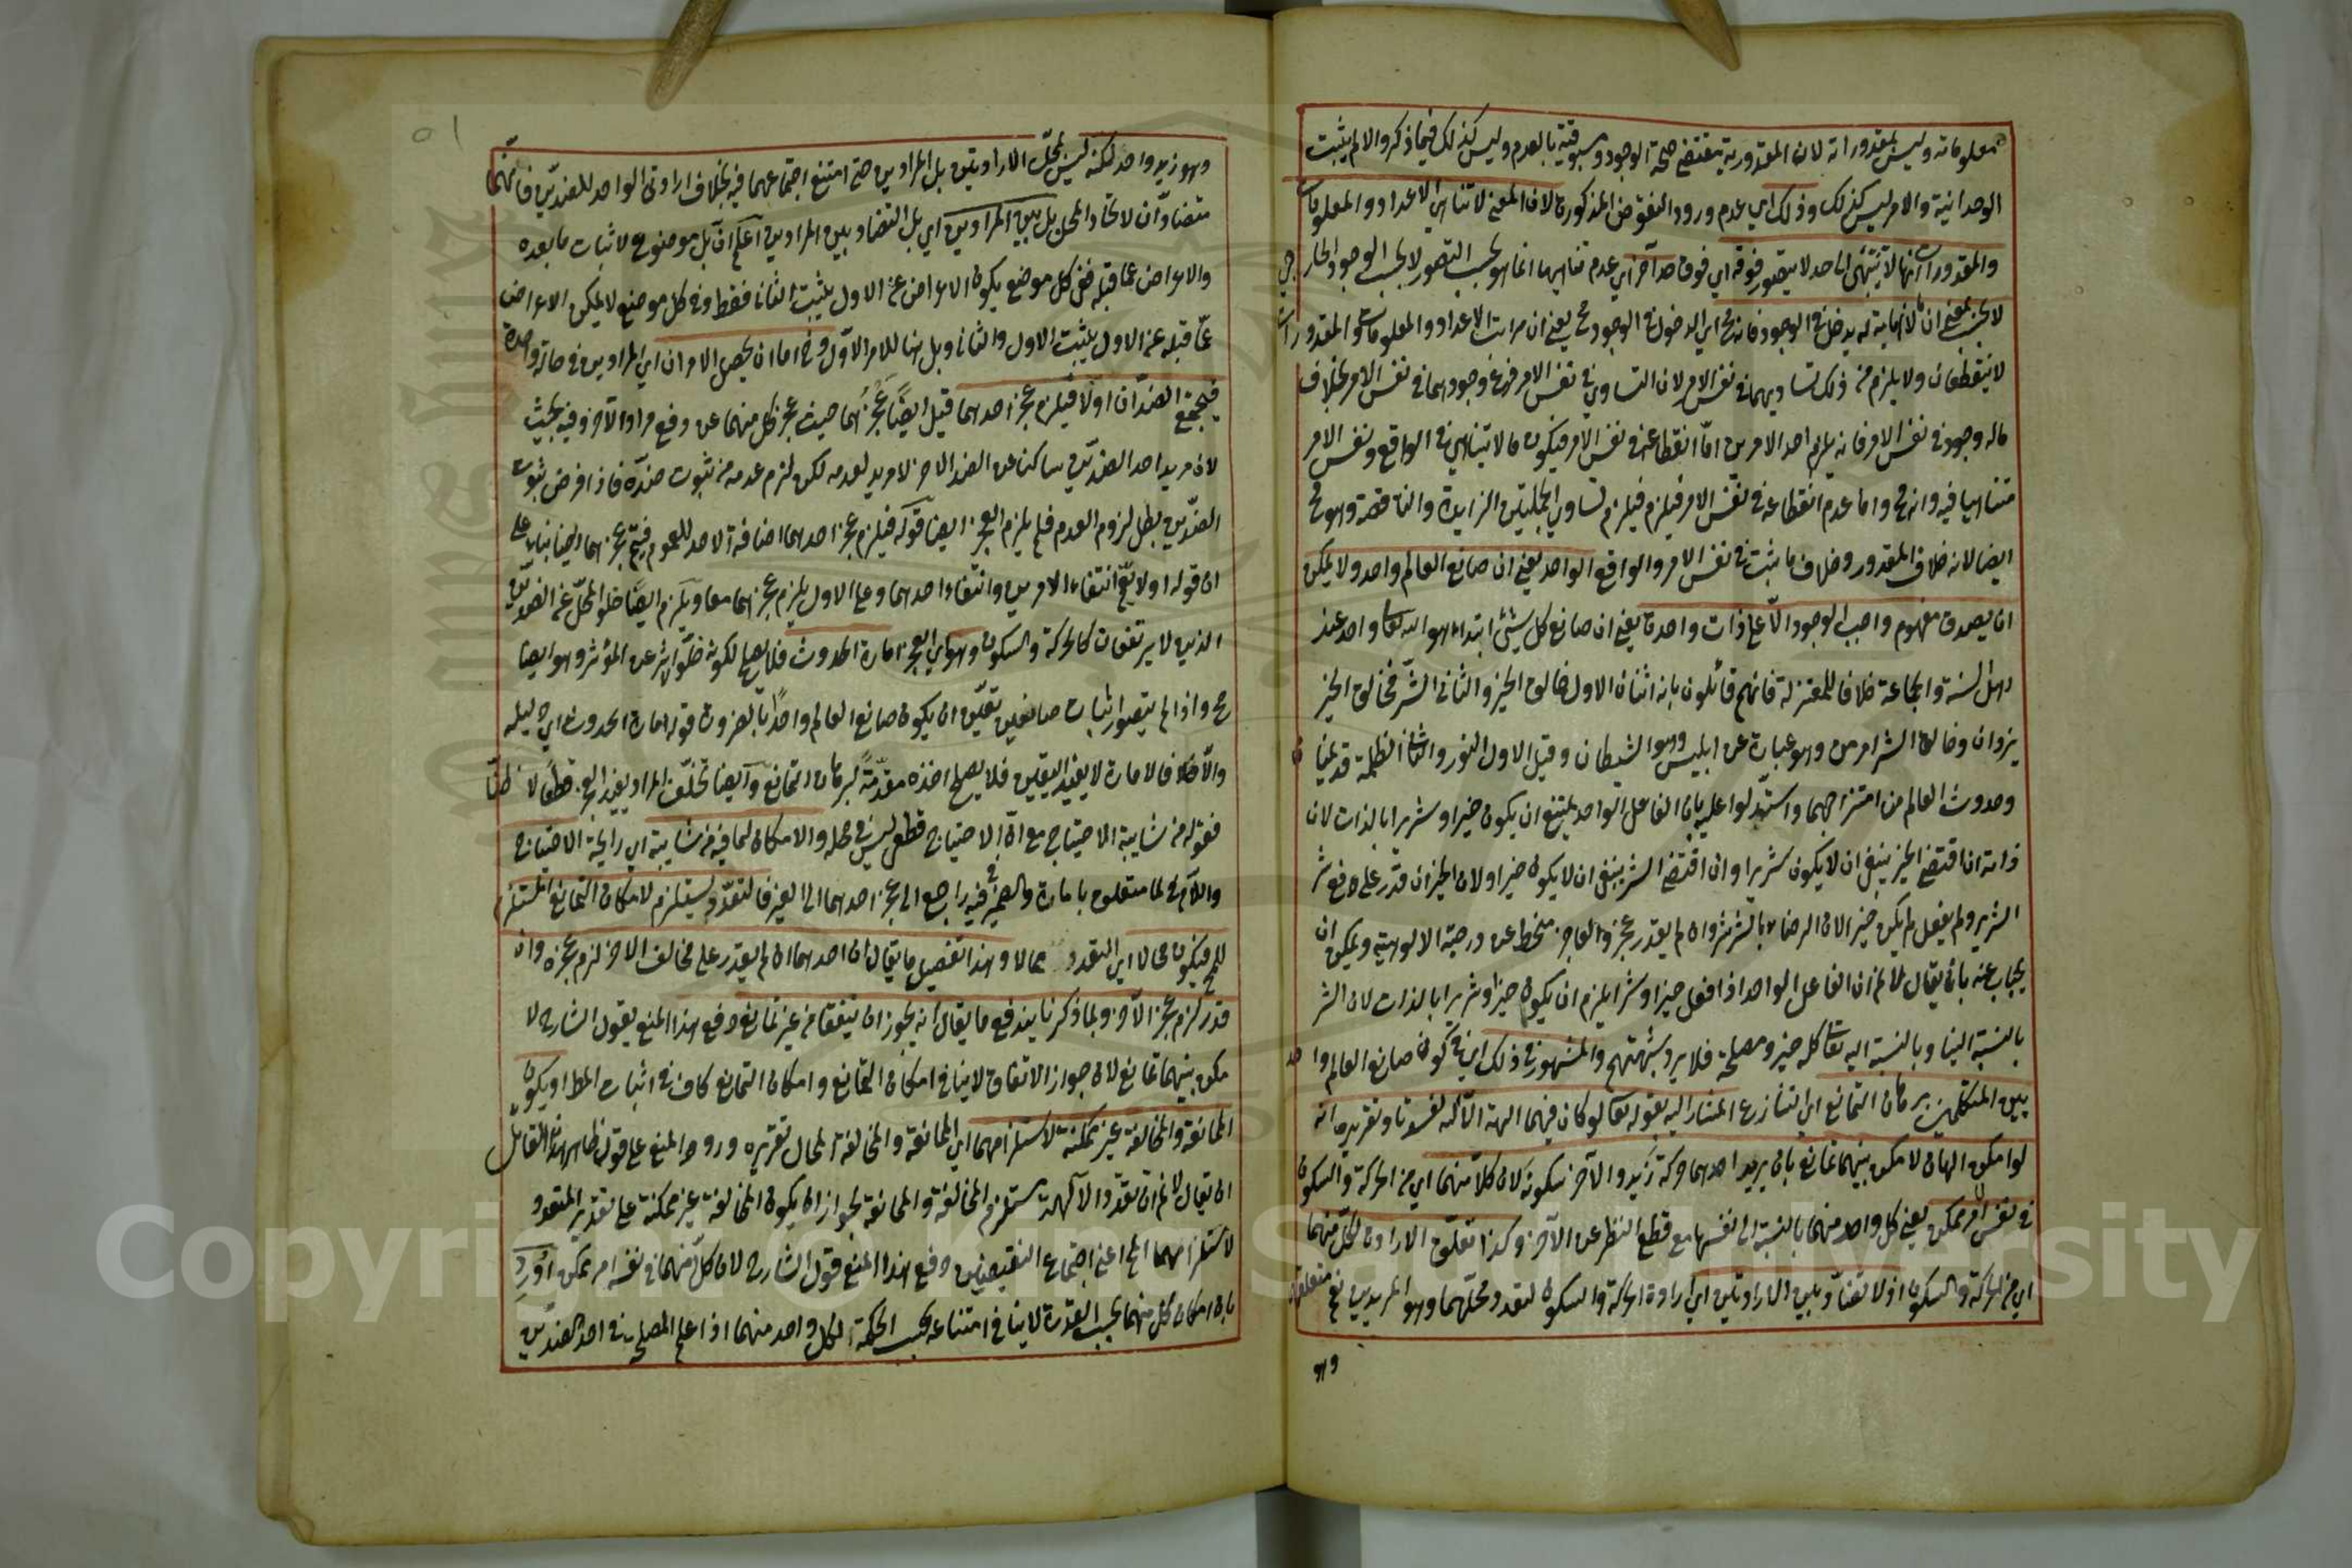 معلوماته وليس بمقدوراته لان المقدورية تقتضي صحة الوجود ومسبوقيته بالعدم وليس كذلك فيما ذكر والا لم يثبت
الوحدانية والامر ليس كذلك وذلك اي عدم ورود النقوض المذكورة لان المعنى لا تناهي الاعداد والمعلومات
والمقدورات انها لا تنتهي الى حد لا يتصور فوقه اي فوق حد آخر اي عدم تناهيها انما هو بحسب التصور لا بحسب الوجود الخارجي
لا بمعنى ان ما لا نهاية له يدخل في الوجود فانه مح اي الدخول في الوجود مح يعني ان مراتب الاعداد والمعلومات والمقدورات
لا ينقطعان ولا يلزم من ذلك تساويهما في نفس الامر لان التساوي في نفس الامر فرع وجودهما في نفس الامر بخلاف
ماله وجود في نفس الامر فانه يلزم احد الامرين اما انقطاعه في نفس الامر فيكون ما لا يتناهى في الواقع ونفس الامر
متناهيا فيه وانه مح واما عدم انقطاعه في نفس الامر فيلزم تساوي الجملتين الزايدة والناقصة وهو مح
ايضا لانه خلاف المقدور وخلاف ما ثبت في نفس الامر والواقع الواحد يعني ان صانع العالم واحد ولا يمكن
ان يصدق مفهوم واجب الوجود الا على ذات واحدة يعني ان صانع كل شيء ابتداء هو الله تعا واحد عند
اهل السنة والجماعة خلافا للمعتزلة فانهم قائلون بانه اثنان الاول خالق الخير والثاني الشر فخالق الخير
يزدان وخالق الشر اهرمن وهو عبارة عن ابليس وهو الشيطان وقيل الاول النور والثاني الظلمة قديمان
وحدوث العالم من امتزاجهما واستدلوا عليه بان الفاعل الواحد يمتنع ان يكون خيرا وشريرا بالذات لان
ذاته ان اقتضى الخير ينبغي ان لا يكون شريرا وان اقتضى الشر ينبغي ان لا يكون خيرا ولان الخير ان قدر على دفع شر
الشرير ولم يفعل لم يكن خيرا لان الرضاء بالشر شر وان لم يقدر عجز والعاجز منحط عن درجة الالوهية ويمكن ان
يجاب عنه بان يقال لا نم ان الفاعل الواحد اذا فعل خيرا وشرا يلزم ان يكون خيرا وشريرا بالذات لان الشر
بالنسبة الينا وبالنسبة اليه تعا كله خير ومصلحة فلا يرد شبهتهم والمشهور في ذلك اي في كون صانع العالم واحد
بين المتكلمين برهان التمانع اي التنازع المشار اليه بقوله تعالى لو كان فيهما الهة الا الله لفسدتا وتقريره انه
لو امكن الهان لامكن بينهما تمانع بان يريد احدهما حركة زيد والآخر سكونه لان كلا منهما اي من الحركة والسكون
في نفس الامر ممكن يعني كل واحد منهما بالنسبة الى نفسها مع قطع النظر عن الآخر وكذا تعلق الارادة لكل منهما
اي من الحركة والسكون اذ لا تضاد بين الارادتين اي ارادة الحركة والسكون لتعدد محلهما وهو المريدين نعم متعلقهما
وهو
وهو زيد واحد لكنه ليس لمحل الارادتين بل المرادين حتى امتنع اجتماعهما فيه بخلاف ارادتي الواحد للضدين فانهما
متضادان لاتحاد المحل بل بين المرادين اي بل التضاد بين المرادين اعلم ان بل موضوع لاثبات ما بعده
والاعراض عما قبله ففي كل موضع يكون الاعراض عن الاول يثبت الثاني فقط وفي كل موضع لا يمكن الاعراض
عما قبله عن الاول يثبت الاول والثاني وبل ههنا للامر الاول وح اما ان يحصل الامران اي المرادين في حالة واحدة
فيجتمع الضدان اولا فيلزم عجز احدهما قيل ايضا عجزهما حيث عجز كل منهما عن دفع مراد الآخر وفيه بحث
لان مريد احد الضدين ساكن عن الضد الاخر لا مريد لعدمه لكن لزم عدمه من ثبوت ضده فاذا فرض ثبوت
الضدين بطل لزوم العدم فلم يلزم العجز ايضا قوله فيلزم عجز احدهما اضافة الاحد للعموم فيتم عجزهما ايضا بناء على
ان قوله اولا يعم انتفاء الامرين وانتفاء احدهما وعلى الاول يلزم عجزهما معا ويلزم ايضا خلو المحل عن الضدين
الذين لا يرتفعان كالحركة والسكون وهو اي العجز امارة الحدوث فلا يصلح لكونه خلو اثر عن المؤثر وهو ايضا
مح واذا لم يتصور اثبات صانعين تعين ان يكون صانع العالم واحدا بالضرورة قوله امارة الحدوث اي دليله
والا فالامارة لا يفيد اليقين فلا يصلح اخذه مقدمة لبرهان التمانع وايضا تخلف المراد يفيد العجز قطعا لا ظنا
فقوله من شايبة الاحتياج مع ان الاحتياج قطعي ليس في محله والامكان لما فيه من شايبة اي رايحة الاحتياج
واللام في لما متعلق بامارة والضمير في فيه راجع الى عجز احدهما الى الغير فالتعدد يستلزم لامكان التمانع المستلزم
للمح فيكون محالا اي التعدد محالا وهذا تفصيل ما يقال ان احدهما ان لم يقدر على مخالفة الاخر لزم عجزه وان
قدر لزم عجز الآخر وبما ذكرنا يندفع ما يقال انه يجوز ان يتفقا من غير تمانع دفع هذا المنع بقول الشارح لا
مكن بينهما تمانع لان جواز الاتفاق لا ينافي امكان التمانع وامكان التمانع كاف في اثبات المط او يكون
الممانعة والمخالفة غير ممكنة لاستلزامهما اي الممانعة والمخالفة المحال تقريره ورود المنع على قول ظاهر هذا القائل
ان يقال لا نم ان تعدد الآلهة مستلزم المخالفة والممانعة لجواز ان يكون المخالفة غير ممكنة على تقدير التعدد
لاستلزامهما المح اعني اجتماع النقيضين دفع هذا المنع قول الشارح لان كلا منهما في نفسه امر ممكن اورد
بان امكان كل منهما بحسب القدرة لا ينافي امتناعه بحسب الحكمة لكل واحد منهما اذا علم المصلحة في احد الضدين
Copyright © King Saud University